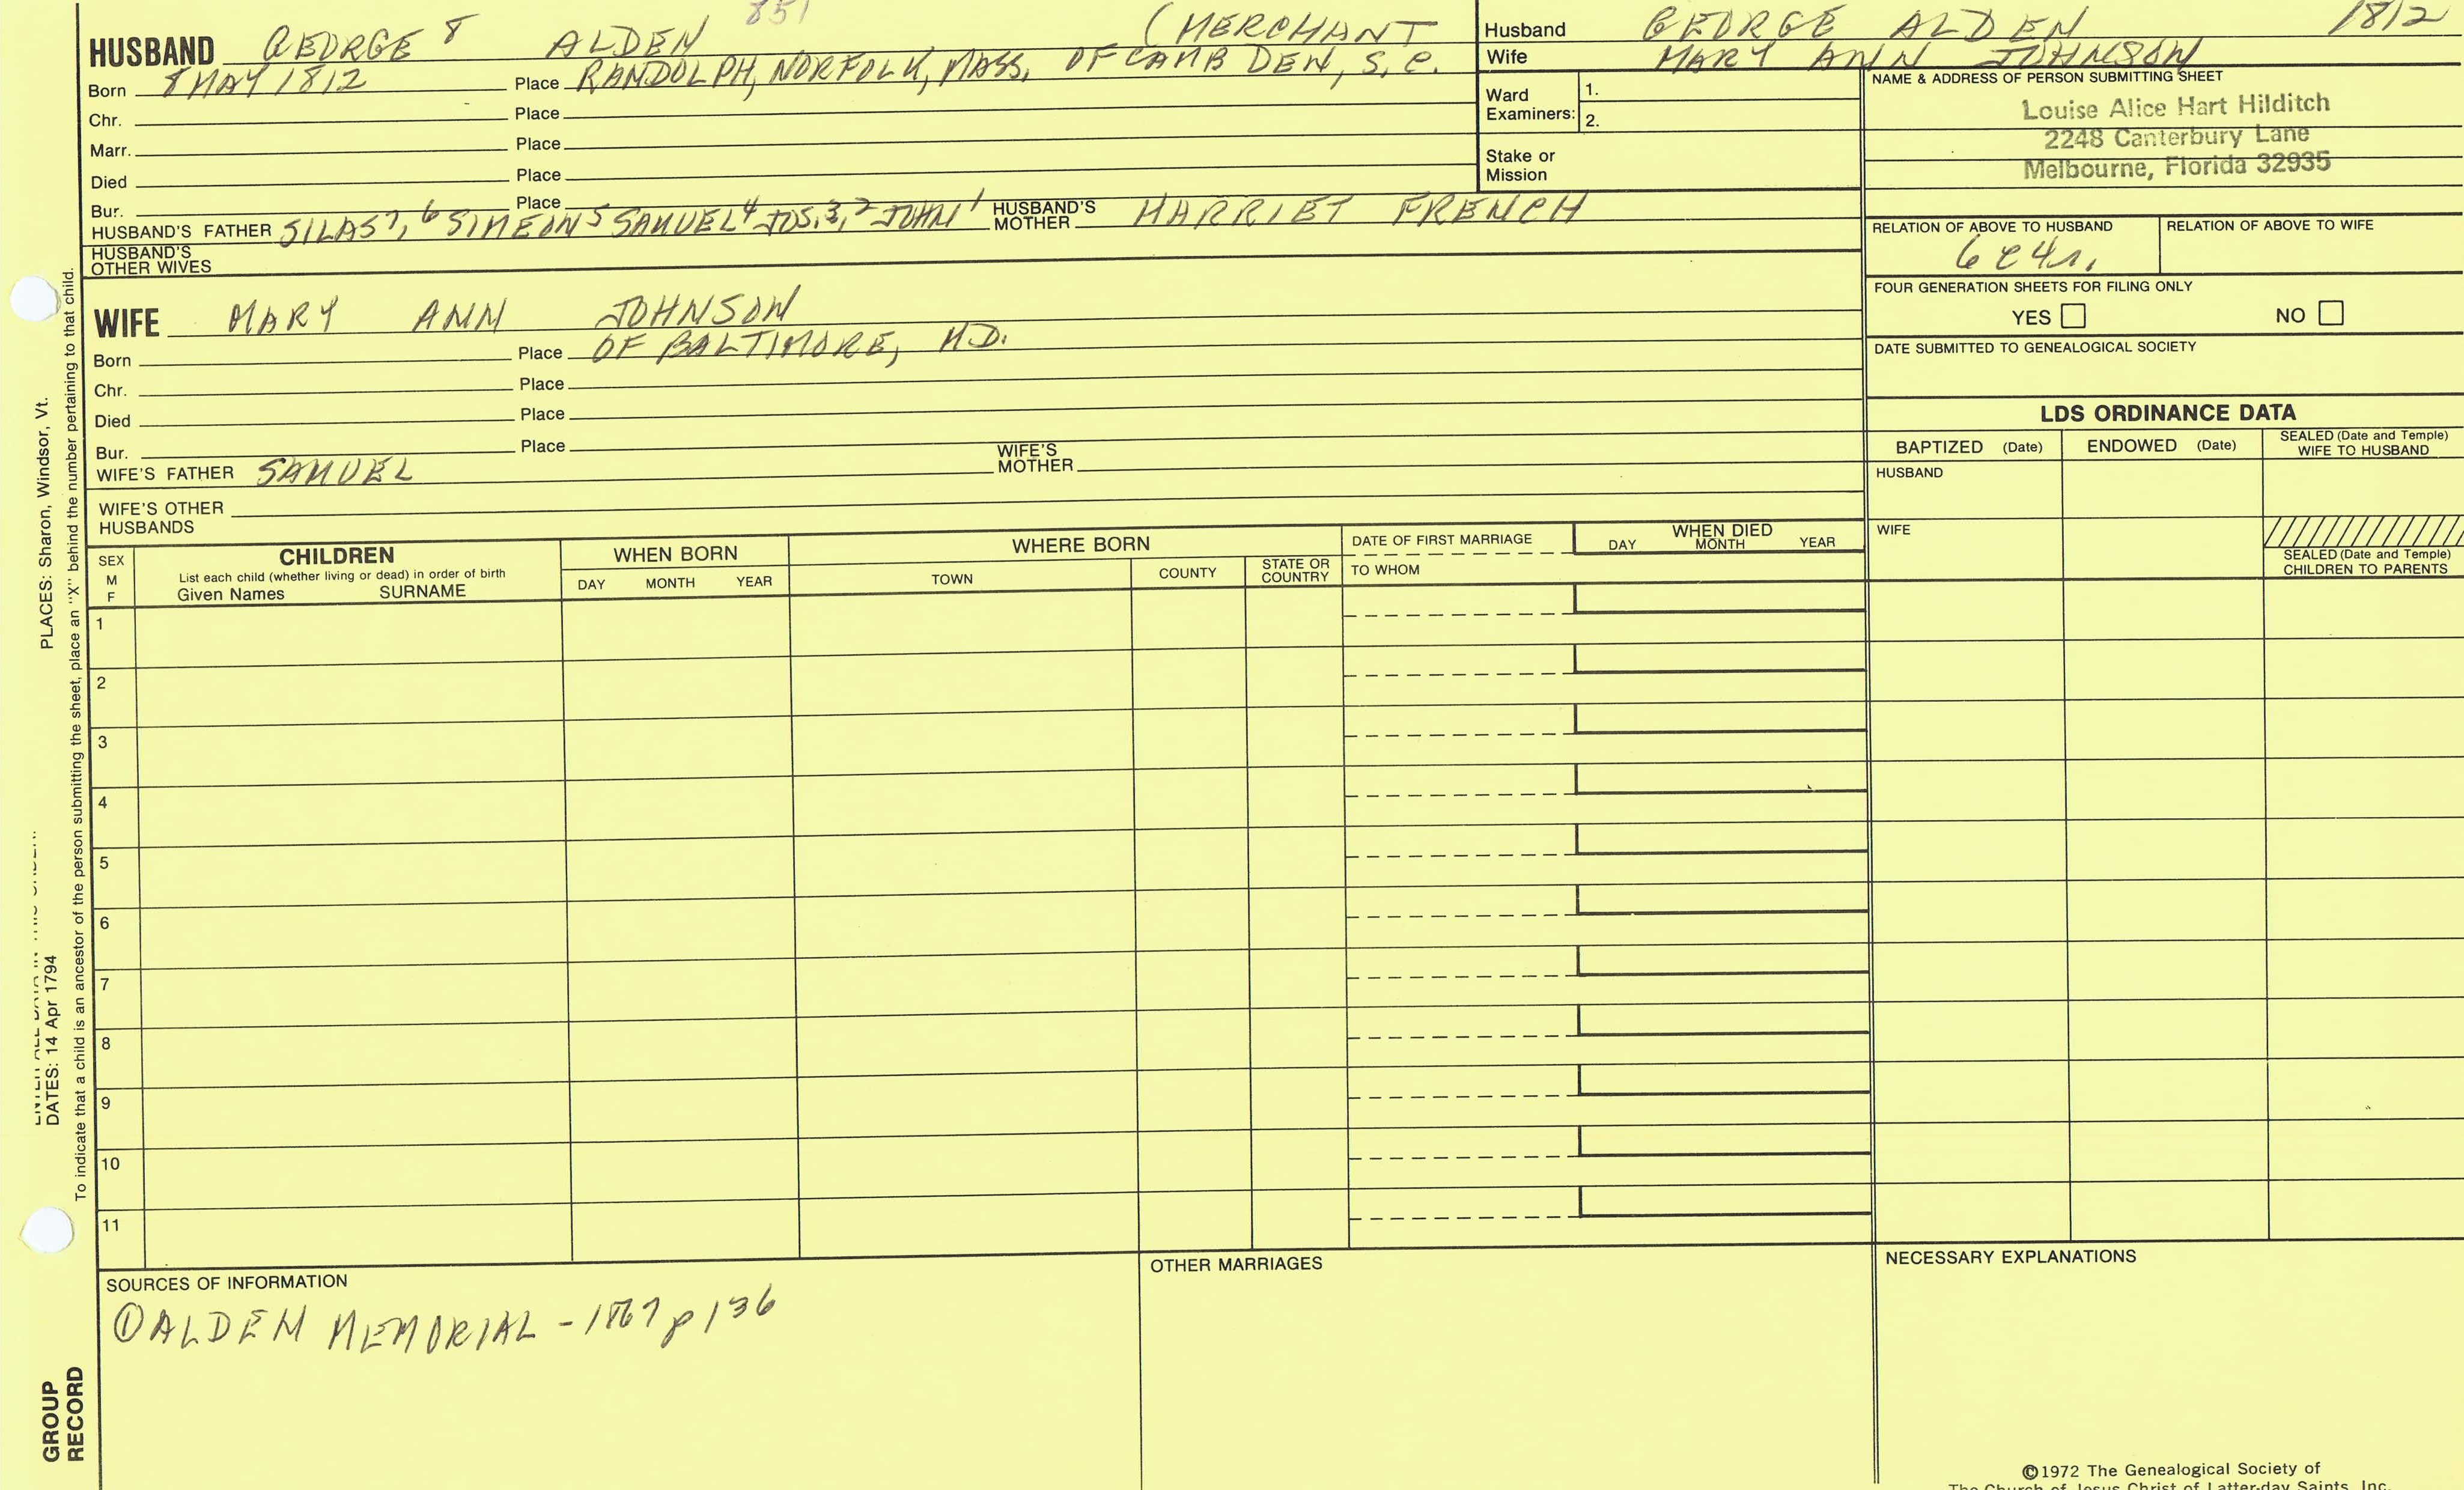 851
HUSBAND GEORGE 8 ALDEN (MERCHANT
Born 8 MAY 1812 Place RANDOLPH, NORFOLK, MASS. OF CAMBDEN, S.C.
Chr. Place
Marr. Place
Died Place
Bur. Place
HUSBAND'S FATHER SILAS 7, 6 SIMEON 5 SAMUEL 4 JOS. 3, 2 JOHN 1 HUSBAND'S MOTHER HARRIET FRENCH
HUSBAND'S OTHER WIVES
WIFE MARY ANN JOHNSON
Born Place OF BALTIMORE, M.D.
Chr. Place
Died Place
Bur. Place
WIFE'S FATHER SAMUEL WIFE'S MOTHER
WIFE'S OTHER HUSBANDS
Husband GEORGE ALDEN 1812
Wife MARY ANN JOHNSON
Ward Examiners: 1.
2.
Stake or Mission
NAME & ADDRESS OF PERSON SUBMITTING SHEET
Louise Alice Hart Hilditch
2248 Canterbury Lane
Melbourne, Florida 32935
RELATION OF ABOVE TO HUSBAND RELATION OF ABOVE TO WIFE
6C4r.
FOUR GENERATION SHEETS FOR FILING ONLY
YES NO
DATE SUBMITTED TO GENEALOGICAL SOCIETY
LDS ORDINANCE DATA
BAPTIZED (Date) ENDOWED (Date) SEALED (Date and Temple) WIFE TO HUSBAND
HUSBAND
WIFE
SEALED (Date and Temple)
CHILDREN TO PARENTS
SEX M F
CHILDREN
List each child (whether living or dead) in order of birth
Given Names SURNAME
WHEN BORN
DAY MONTH YEAR
WHERE BORN
TOWN COUNTY STATE OR COUNTRY
DATE OF FIRST MARRIAGE
TO WHOM
WHEN DIED
DAY MONTH YEAR
1
2
3
4
5
6
7
8
9
10
11
SOURCES OF INFORMATION
① ALDEN MEMORIAL - 1867 p 136
OTHER MARRIAGES
NECESSARY EXPLANATIONS
©1972 The Genealogical Society of
The Church of Jesus Christ of Latter-day Saints, Inc.
PLACES: Sharon, Windsor, Vt.
DATES: 14 Apr 1794
To indicate that a child is an ancestor of the person submitting the sheet, place an "X" behind the number pertaining to that child.
GROUP
RECORD